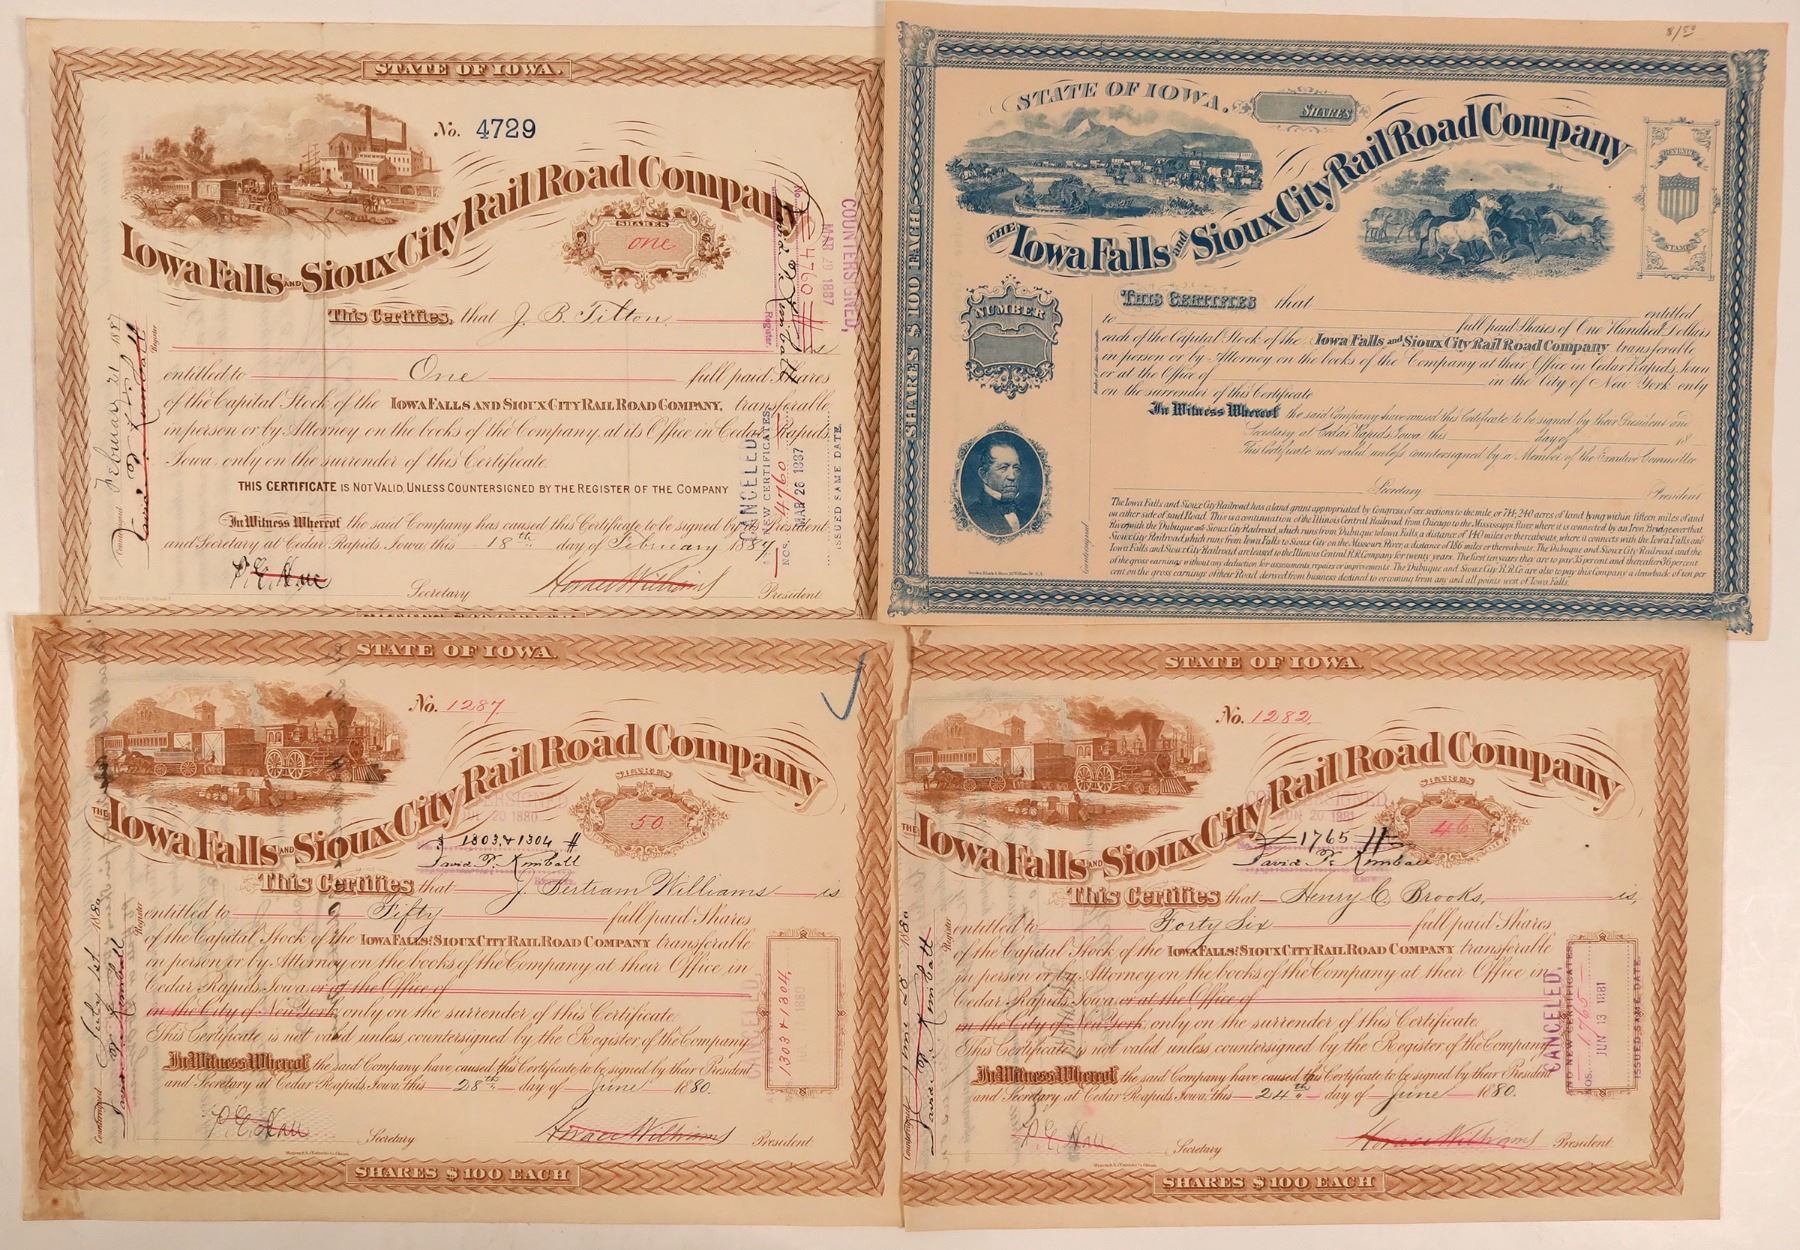 STATE OF IOWA.
No. 4729
Iowa Falls AND Sioux City Rail Road Company
SHARES
one
This Certifies, that J. B. Tilton
entitled to One full paid Shares
of the Capital Stock of the IOWA FALLS AND SIOUX CITY RAIL ROAD COMPANY, transferable
in person or by Attorney on the books of the Company, at its Office in Cedar Rapids,
Iowa, only on the surrender of this Certificate.
THIS CERTIFICATE IS NOT VALID, UNLESS COUNTERSIGNED BY THE REGISTER OF THE COMPANY
In Witness Whereof the said Company has caused this Certificate to be signed by its President
and Secretary at Cedar Rapids, Iowa, this 18th day of February 1887
P. E. Hall Secretary Horace Williams President
Countersigned February 21 1887
Register
COUNTERSIGNED,
4760
Register
CANCELED,
NEW CERTIFICATES
NOS. 4760
MAR 26 1887
ISSUED SAME DATE.
8/50
STATE OF IOWA.
SHARES
THE Iowa Falls and Sioux City Rail Road Company
REVENUE
STAMP
SHARES $100 EACH
NUMBER
This Certifies that
entitled
to full paid Shares of One Hundred Dollars
each of the Capital Stock of the Iowa Falls and Sioux City Rail Road Company transferable
in person or by Attorney on the books of the Company at their Office in Cedar Rapids, Iowa
or at the Office of in the City of New York only
on the surrender of this Certificate
In Witness Whereof the said Company have caused this Certificate to be signed by their President and
Secretary at Cedar Rapids, Iowa this day of 18
This Certificate not valid unless countersigned by a Member of the Executive Committee
Secretary President
Countersigned
The Iowa Falls and Sioux City Railroad has a land grant appropriated by Congress of six sections to the mile, or 744,240 acres of land lying within fifteen miles of and
on either side of said Road. This is a continuation of the Illinois Central Railroad from Chicago to the Mississippi River, where it is connected by an Iron Bridge over that
River with the Dubuque and Sioux City Railroad, which runs from Dubuque to Iowa Falls, a distance of 140 miles or thereabouts, where it connects with the Iowa Falls and
Sioux City Railroad, which runs from Iowa Falls to Sioux City on the Missouri River, a distance of 186 miles or thereabouts. The Dubuque and Sioux City Railroad and the
Iowa Falls and Sioux City Railroad are leased to the Illinois Central R.R. Company for twenty years. The first ten years they are to pay 35 per cent and thereafter 36 per cent
of the gross earnings without any deduction for assessments, repairs or improvements. The Dubuque and Sioux City R.R. Co. are also to pay this Company a drawback of ten per
cent on the gross earnings of their Road, derived from business destined to or coming from any and all points west of Iowa Falls.
STATE OF IOWA.
No. 1287
THE Iowa Falls AND Sioux City Rail Road Company
SHARES
50
COUNTERSIGNED
20 1880
1303 & 1304
David P. Kimball
This Certifies that J. Bertram Williams is
entitled to Fifty full paid Shares
of the Capital Stock of the IOWA FALLS & SIOUX CITY RAIL ROAD COMPANY transferable
in person or by Attorney on the books of the Company at their Office in
Cedar Rapids, Iowa or at the Office of
in the City of New York, only on the surrender of this Certificate.
This Certificate is not valid unless countersigned by the Register of the Company
In Witness Whereof the said Company have caused this Certificate to be signed by their President
and Secretary at Cedar Rapids, Iowa this 28th day of June 1880.
P. E. Hall Secretary Horace Williams President
SHARES $100 EACH
Countersigned July 1st 1880
Register
CANCELED
1303 & 1304
STATE OF IOWA.
No. 1282
THE Iowa Falls AND Sioux City Rail Road Company
SHARES
46
COUNTERSIGNED
20 1881
1765
David P. Kimball
This Certifies that Henry C. Brooks, is,
entitled to Forty Six full paid Shares
of the Capital Stock of the IOWA FALLS & SIOUX CITY RAIL ROAD COMPANY transferable
in person or by Attorney on the books of the Company at their Office in
Cedar Rapids, Iowa or at the Office of
in the City of New York, only on the surrender of this Certificate.
This Certificate is not valid unless countersigned by the Register of the Company
In Witness Whereof the said Company have caused this Certificate to be signed by their President
and Secretary at Cedar Rapids, Iowa this 24th day of June 1880.
P. E. Hall Secretary Horace Williams President
SHARES $100 EACH
Countersigned June 28 1880
David P. Kimball
Register
CANCELED,
AND NEW CERTIFICATES
NOS. 1765
JUN 13 1881
ISSUED SAME DATE.